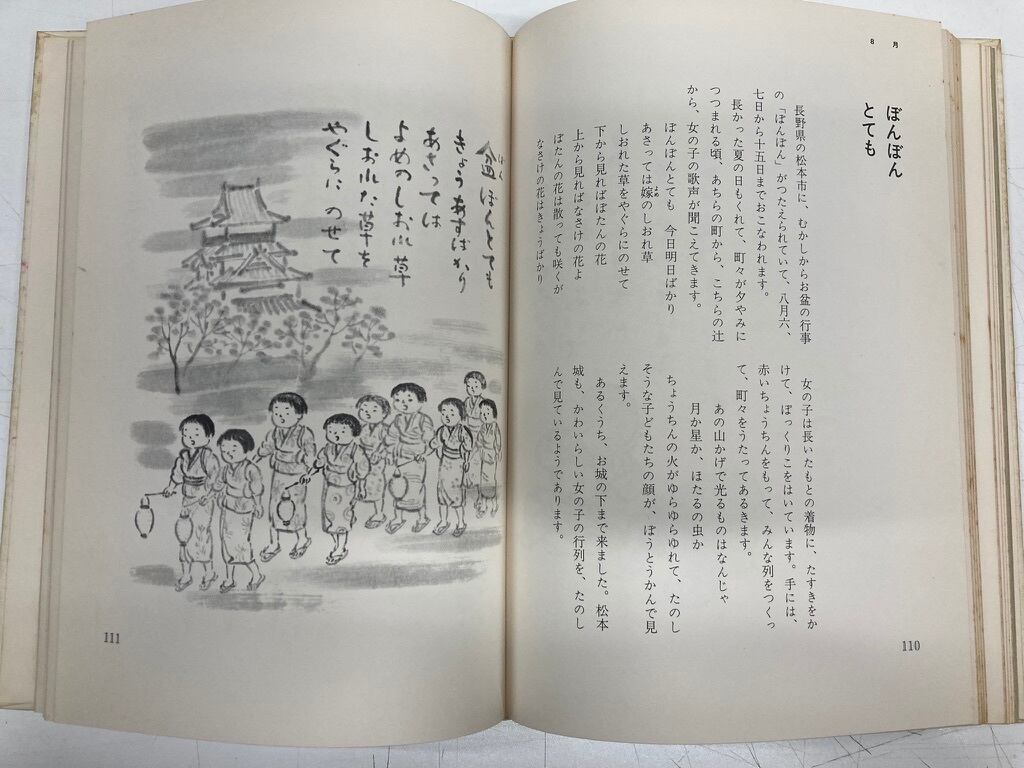 8月
ぼんぼん
とても
長野県の松本市に、むかしからお盆の行事
の「ぼんぼん」がつたえられていて、八月六、
七日から十五日までおこなわれます。
長かった夏の日もくれて、町々が夕やみに
つつまれる頃、あちらの町から、こちらの辻
から、女の子の歌声が聞こえてきます。
ぼんぼんとても　今日明日ばかり
あさっては嫁のしおれ草
よめ
しおれた草をやぐらにのせて
下から見ればぼたんの花
上から見ればなさけの花よ
ぼたんの花は散っても咲くが
なさけの花はきょうばかり
女の子は長いたもとの着物に、たすきをか
けて、ぽっくりこをはいています。手には、
赤いちょうちんをもって、みんな列をつくっ
て、町々をうたってあるきます。
あの山かげで光るものはなんじゃ
月か星か、ほたるの虫か
ちょうちんの火がゆらゆらゆれて、たのし
そうな子どもたちの顔が、ぼうとうかんで見
えます。
あるくうち、お城の下まで来ました。松本
城も、かわいらしい女の子の行列を、たのし
んで見ているようであります。
110
盆ぼんとても
ぼん
きょうあすばかり
あさっては
よめのしおれ草
しおれた草を
やぐらにのせて
111